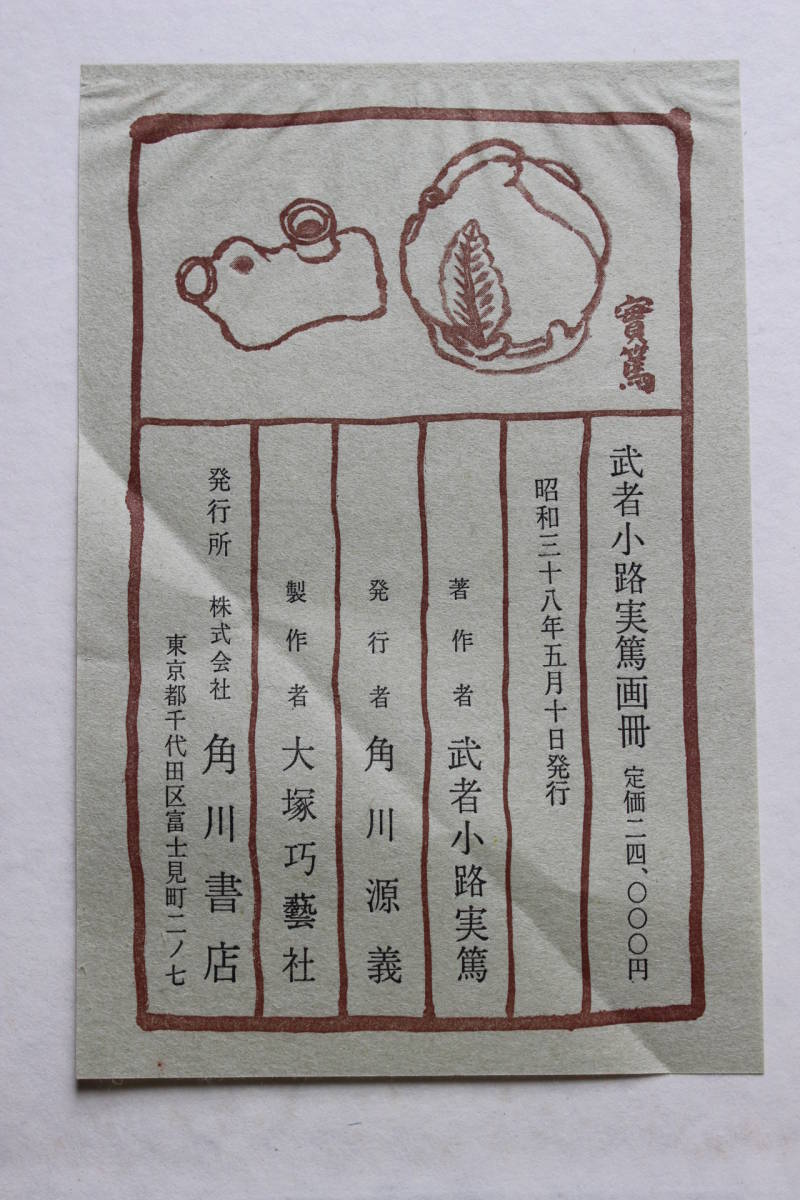 實篤
武者小路実篤画冊 定価二四、〇〇〇円
昭和三十八年五月十日発行
著作者 武者小路実篤
発行者 角川源義
製作者 大塚巧藝社
発行所 株式会社 角川書店
東京都千代田区富士見町二ノ七